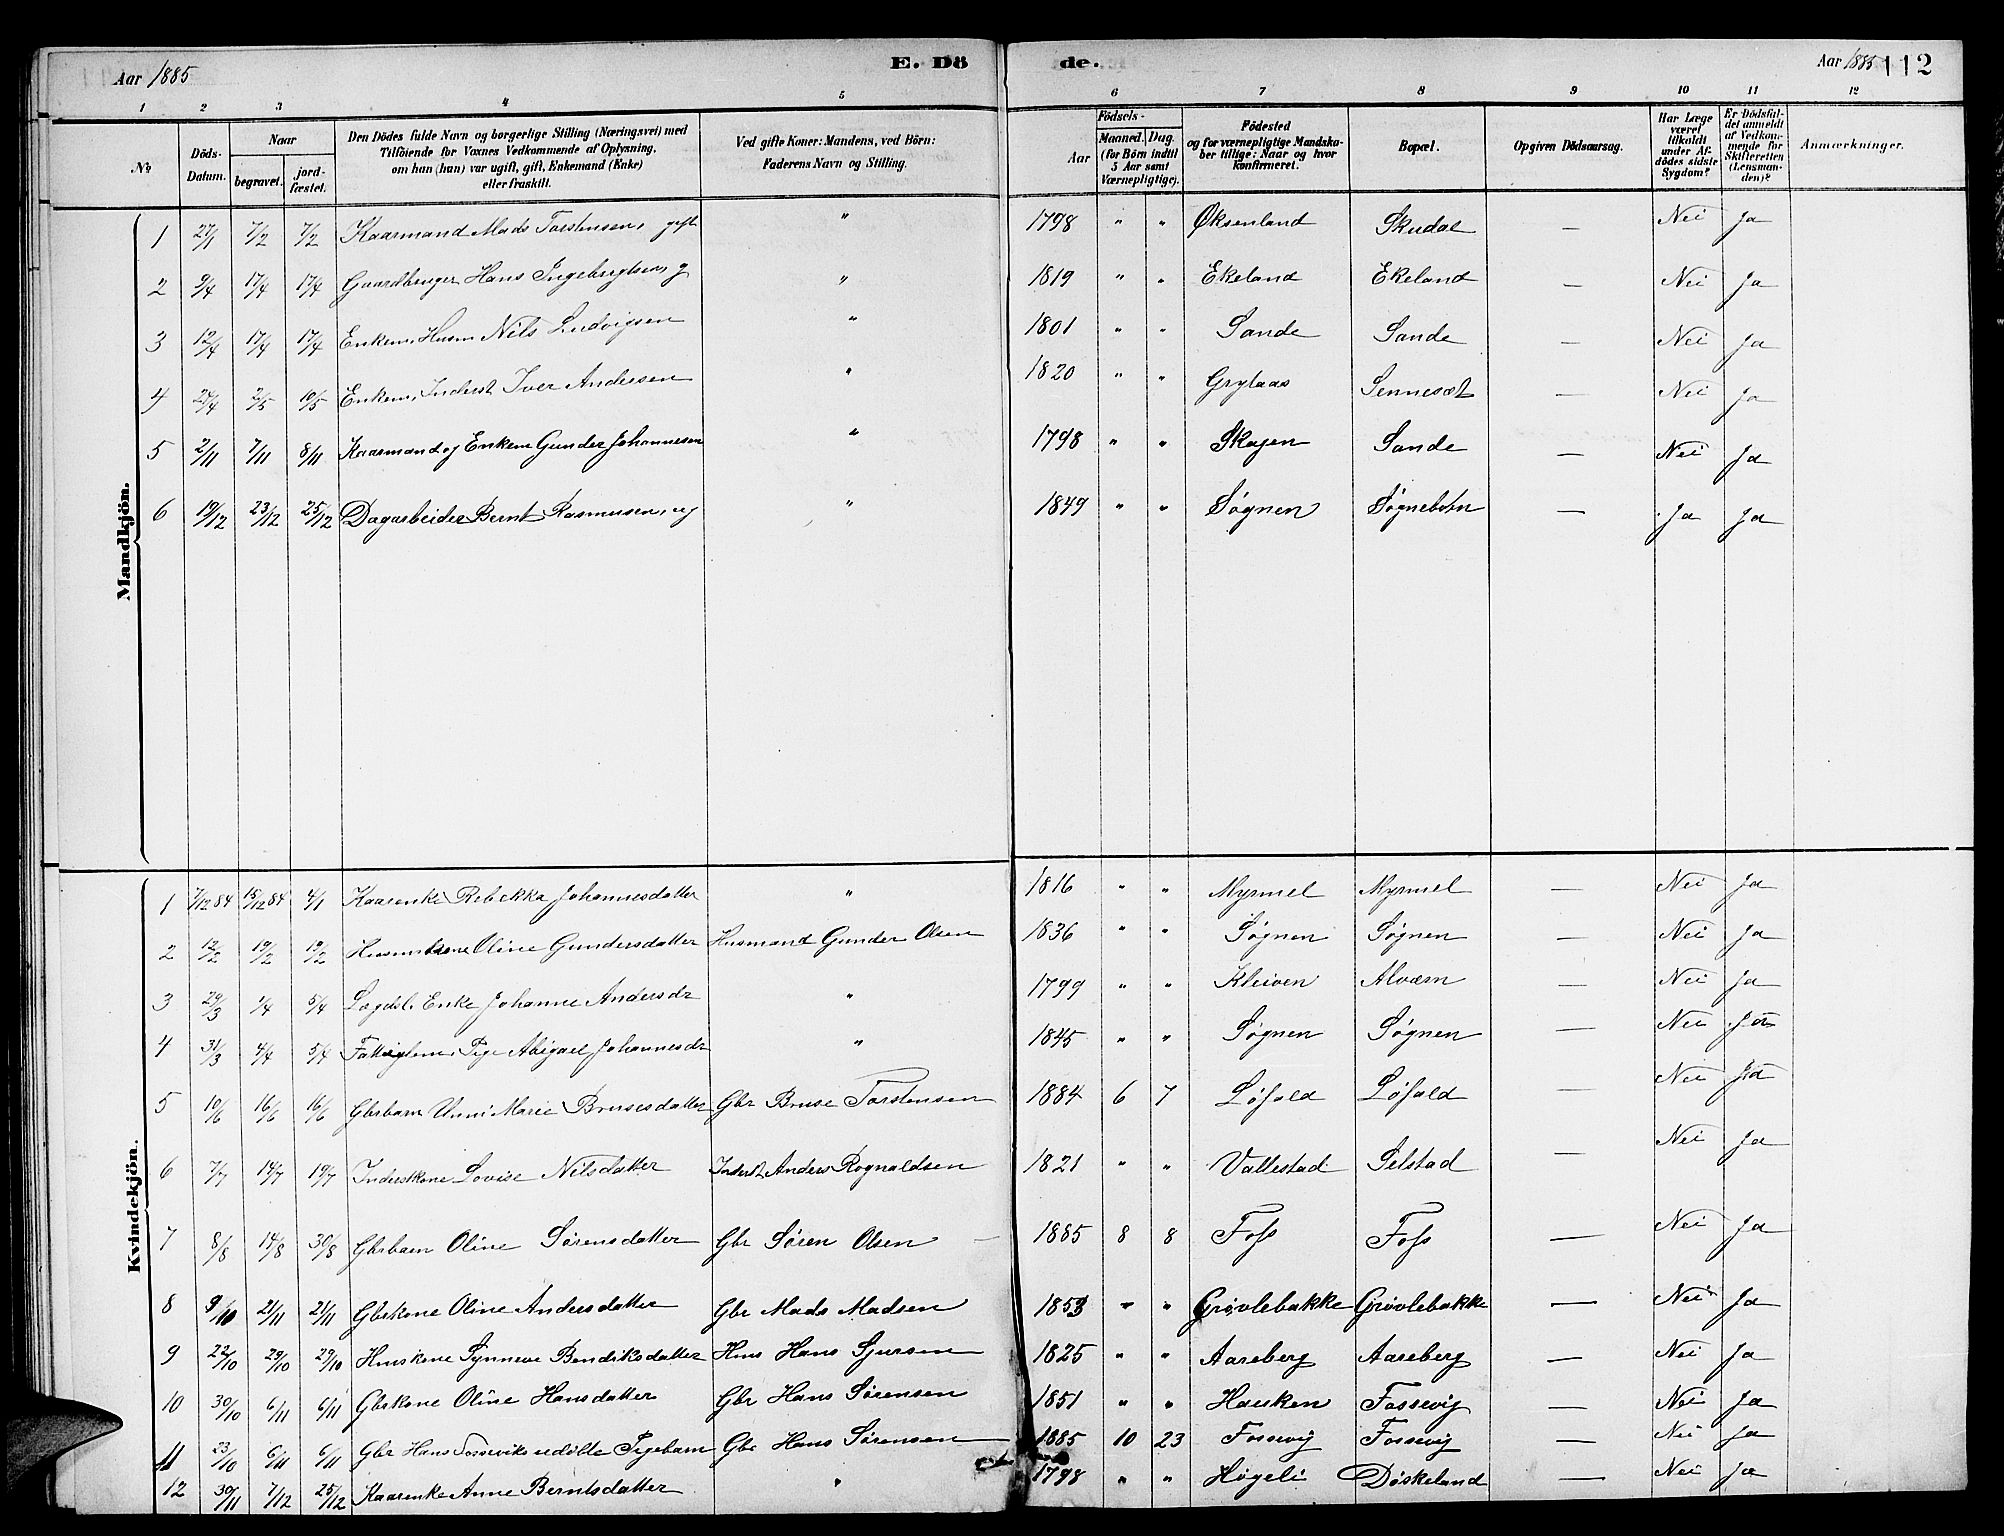 Aar 1885 E. Dö de. Aar 1885 112
1 2 3 4 5 6 7 8 9 10 11 12
No. Döds-Datum. Naar begravet. jord-fæstet. Den Dödes fulde Navn og borgerlige Stilling (Næringsvei) med Tilföiende for Voxnes Vedkommende af Oplysning, om han (hun) var ugift, gift, Enkemand (Enke) eller fraskilt. Ved gifte Koner: Mandens, ved Börn: Faderens Navn og Stilling. Födsels- Aar Maaned. Dag. (for Börn indtil 5 Aar samt Værnepligtige). Födested og for værnepligtige Mandskaber tillige: Naar og hvor konfirmeret. Bopæl. Opgiven Dödsaarsag. Har Læge været tilkaldt under Afdödes sidste Sygdom? Er Dödsfaldet anmeldt af Vedkommende for Skifteretten (Lensmanden)? Anmærkninger.
Mandkjön.
1 27/1 7/2 7/2 Kaarmand Mads Torstensen, gift " 1798 " " Øksenland Skudal — Nei Ja
2 9/4 17/4 17/4 Gaardbruger Hans Ingebrigtsen g " 1819 " " Ekeland Ekeland — Nei Ja
3 12/4 17/4 17/4 Enkem. Husm Nils Ludvigsen " 1801 " " Sande Sande — Nei Ja
4 24/4 2/5 10/5 Enkem. Inderst Iver Andersen " 1820 " " Grytaas Sennesæt — Nei Ja
5 2/11 7/11 8/11 Kaarmand og Enkem Gunder Johannesen " 1798 " " Skajen Sande — Nei Ja
6 19/12 23/12 25/12 Dagarbeider Bernt Rasmusen, ug " 1849 " " Søgnen Søgnebotn — Ja Ja
Kvindekjön.
1 7/12 84 15/12 84 4/1 Kaarenke Rebekka Johannesdatter " 1816 " " Myrmel Myrmel — Nei Ja
2 12/2 19/2 19/2 Husmkone Oline Gundersdatter Husmand Gunder Olsen 1836 " " Søgnen Søgnen — Nei Ja
3 29/3 1/4 5/4 Lægdsl. Enke Johanne Andersdr " 1799 " " Kleiven Alværn — Nei Ja
4 31/3 4/4 5/4 Fattiglem. Pige Abigael Johannesdr " 1845 " " Søgnen Søgnen — Nei Ja
5 10/6 16/6 16/6 Gbrbarn Unni Marie Brusesdatter Gbr Bruse Torstensen 1884 6 7 Løfald Løfald — Nei Ja
6 7/7 14/7 19/7 Inderstkone Lovise Nilsdatter Inderst Anders Rognaldsen 1821 " " Vallestad Selstad — Nei Ja
7 8/8 14/8 30/8 Gbrbarn Oline Sørensdatter Gbr Søren Olsen 1885 8 8 Foss Foss — Nei Ja
8 9/10 21/11 21/11 Gbrkone Oline Andersdatter Gbr Mads Madsen 1853 " " Grøvlebakke Grøvlebakke — Nei Ja
9 22/10 29/10 29/10 Huuskone Synneve Bendiksdatter Huus Hans Sjursen 1825 " " Aareberg Aareberg — Nei Ja
10 30/10 6/11 6/11 Gbrkone Oline Hansdatter Gbr Hans Sørensen 1851 " " Hauken Fossevig — Nei Ja
11 23/10 6/11 6/11 Gbr Hans Fosseviks udøbte Pigebarn Gbr Hans Sørensen 1885 10 23 Fossevig Fossevig — Nei Ja
12 30/11 7/12 25/12 Kaarenke Anne Berntsdatter " 1798 " " Høgeli Døskeland — Nei Ja